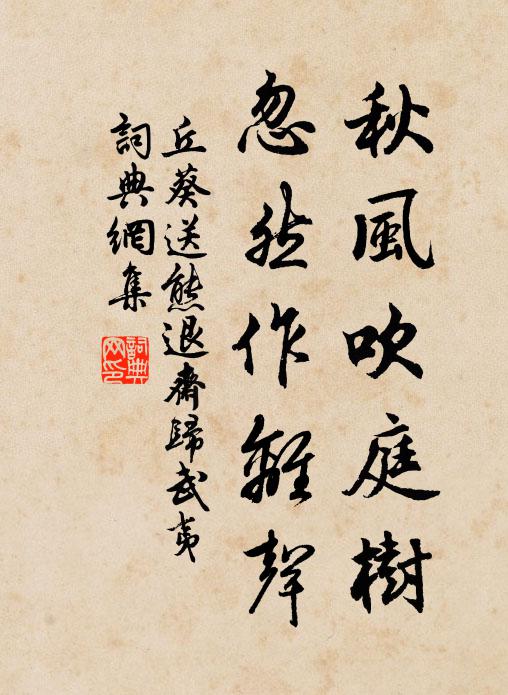 秋風吹庭樹
忽然作離聲
丘葵送熊退齋歸武夷
詞典網集
詞典網印